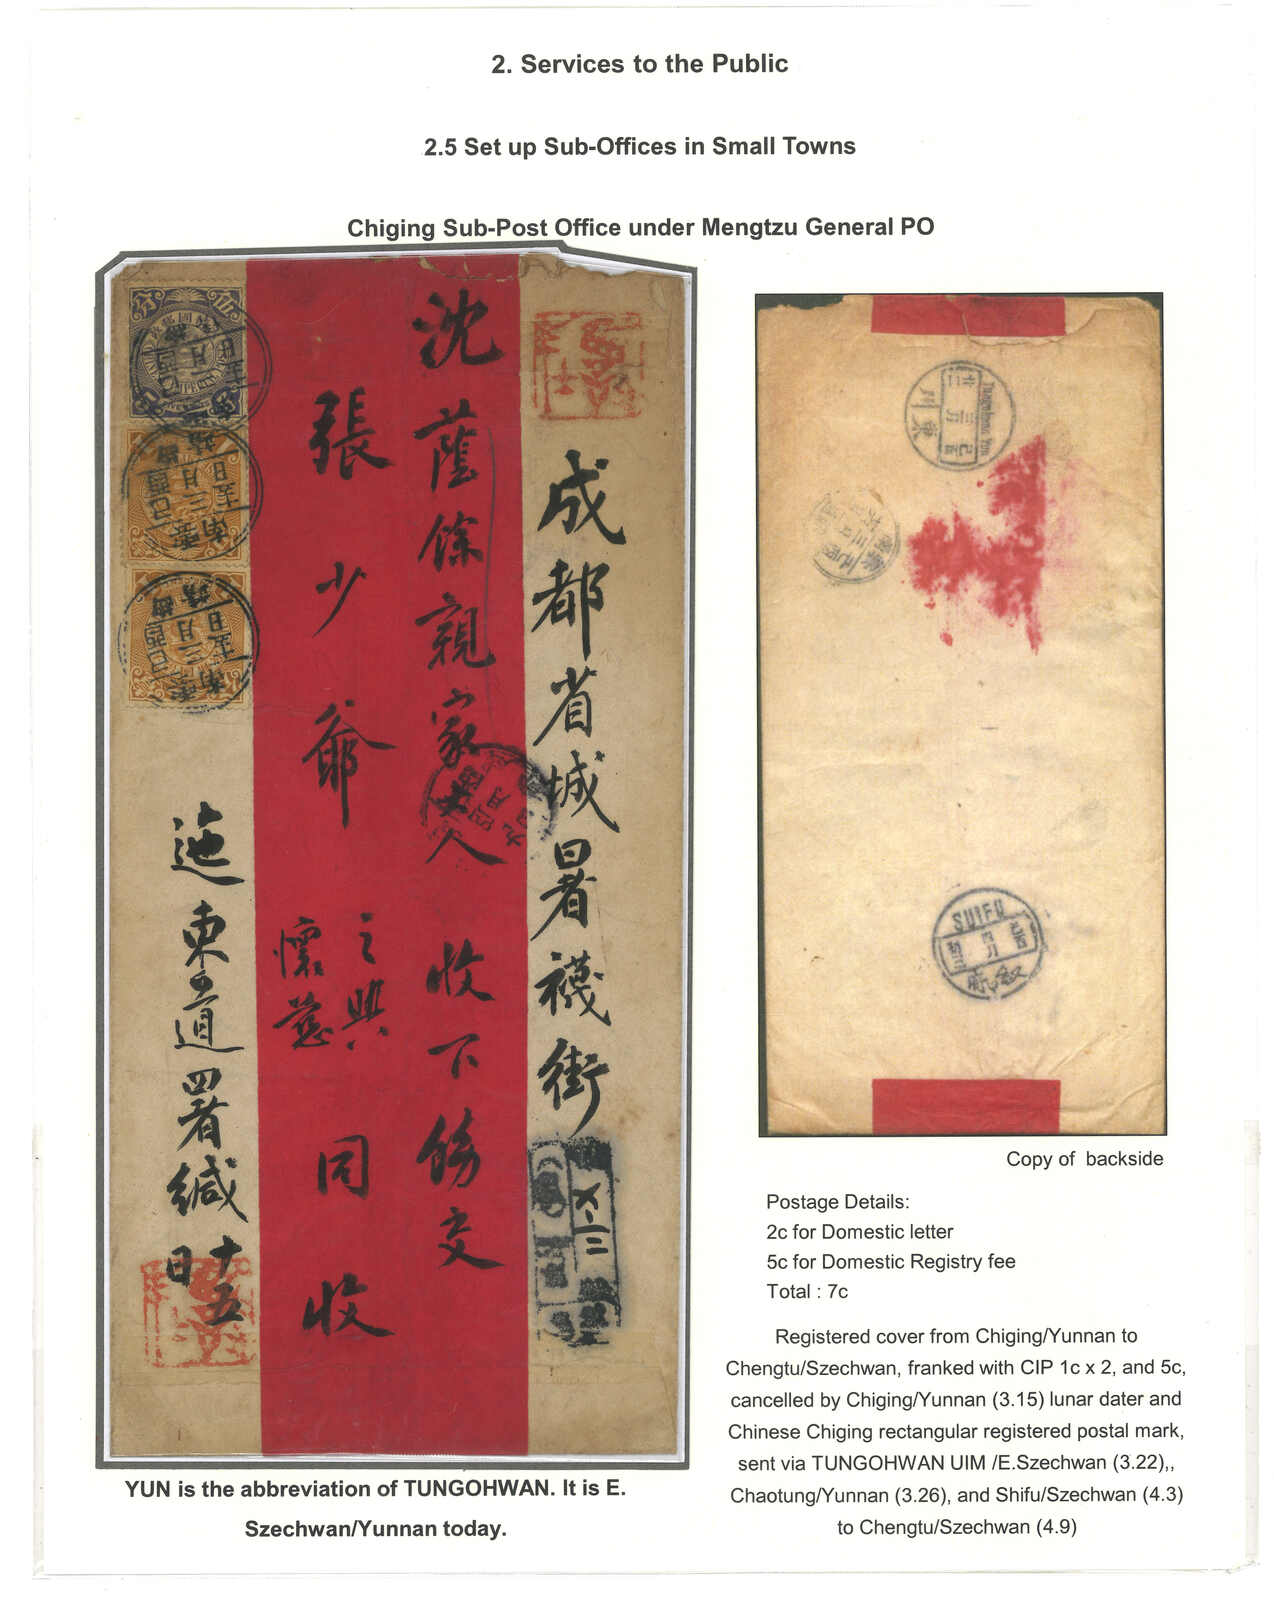 2. Services to the Public
2.5 Set up Sub-Offices in Small Towns
Chiging Sub-Post Office under Mengtzu General PO
成都省城署襪街
沈蔭餘親家大人 收下飭交
張少爺 之興 懷慈 同收
迤東道署緘 十五日
雲南 己酉 三月 十五日
雲南 己酉 三月 十五日
東川 己酉 三月 廿二
SUIFU
敘府
Copy of backside
Postage Details:
2c for Domestic letter
5c for Domestic Registry fee
Total : 7c
Registered cover from Chiging/Yunnan to
Chengtu/Szechwan, franked with CIP 1c x 2, and 5c,
cancelled by Chiging/Yunnan (3.15) lunar dater and
Chinese Chiging rectangular registered postal mark,
sent via TUNGOHWAN UIM /E.Szechwan (3.22),,
Chaotung/Yunnan (3.26), and Shifu/Szechwan (4.3)
to Chengtu/Szechwan (4.9)
YUN is the abbreviation of TUNGOHWAN. It is E.
Szechwan/Yunnan today.